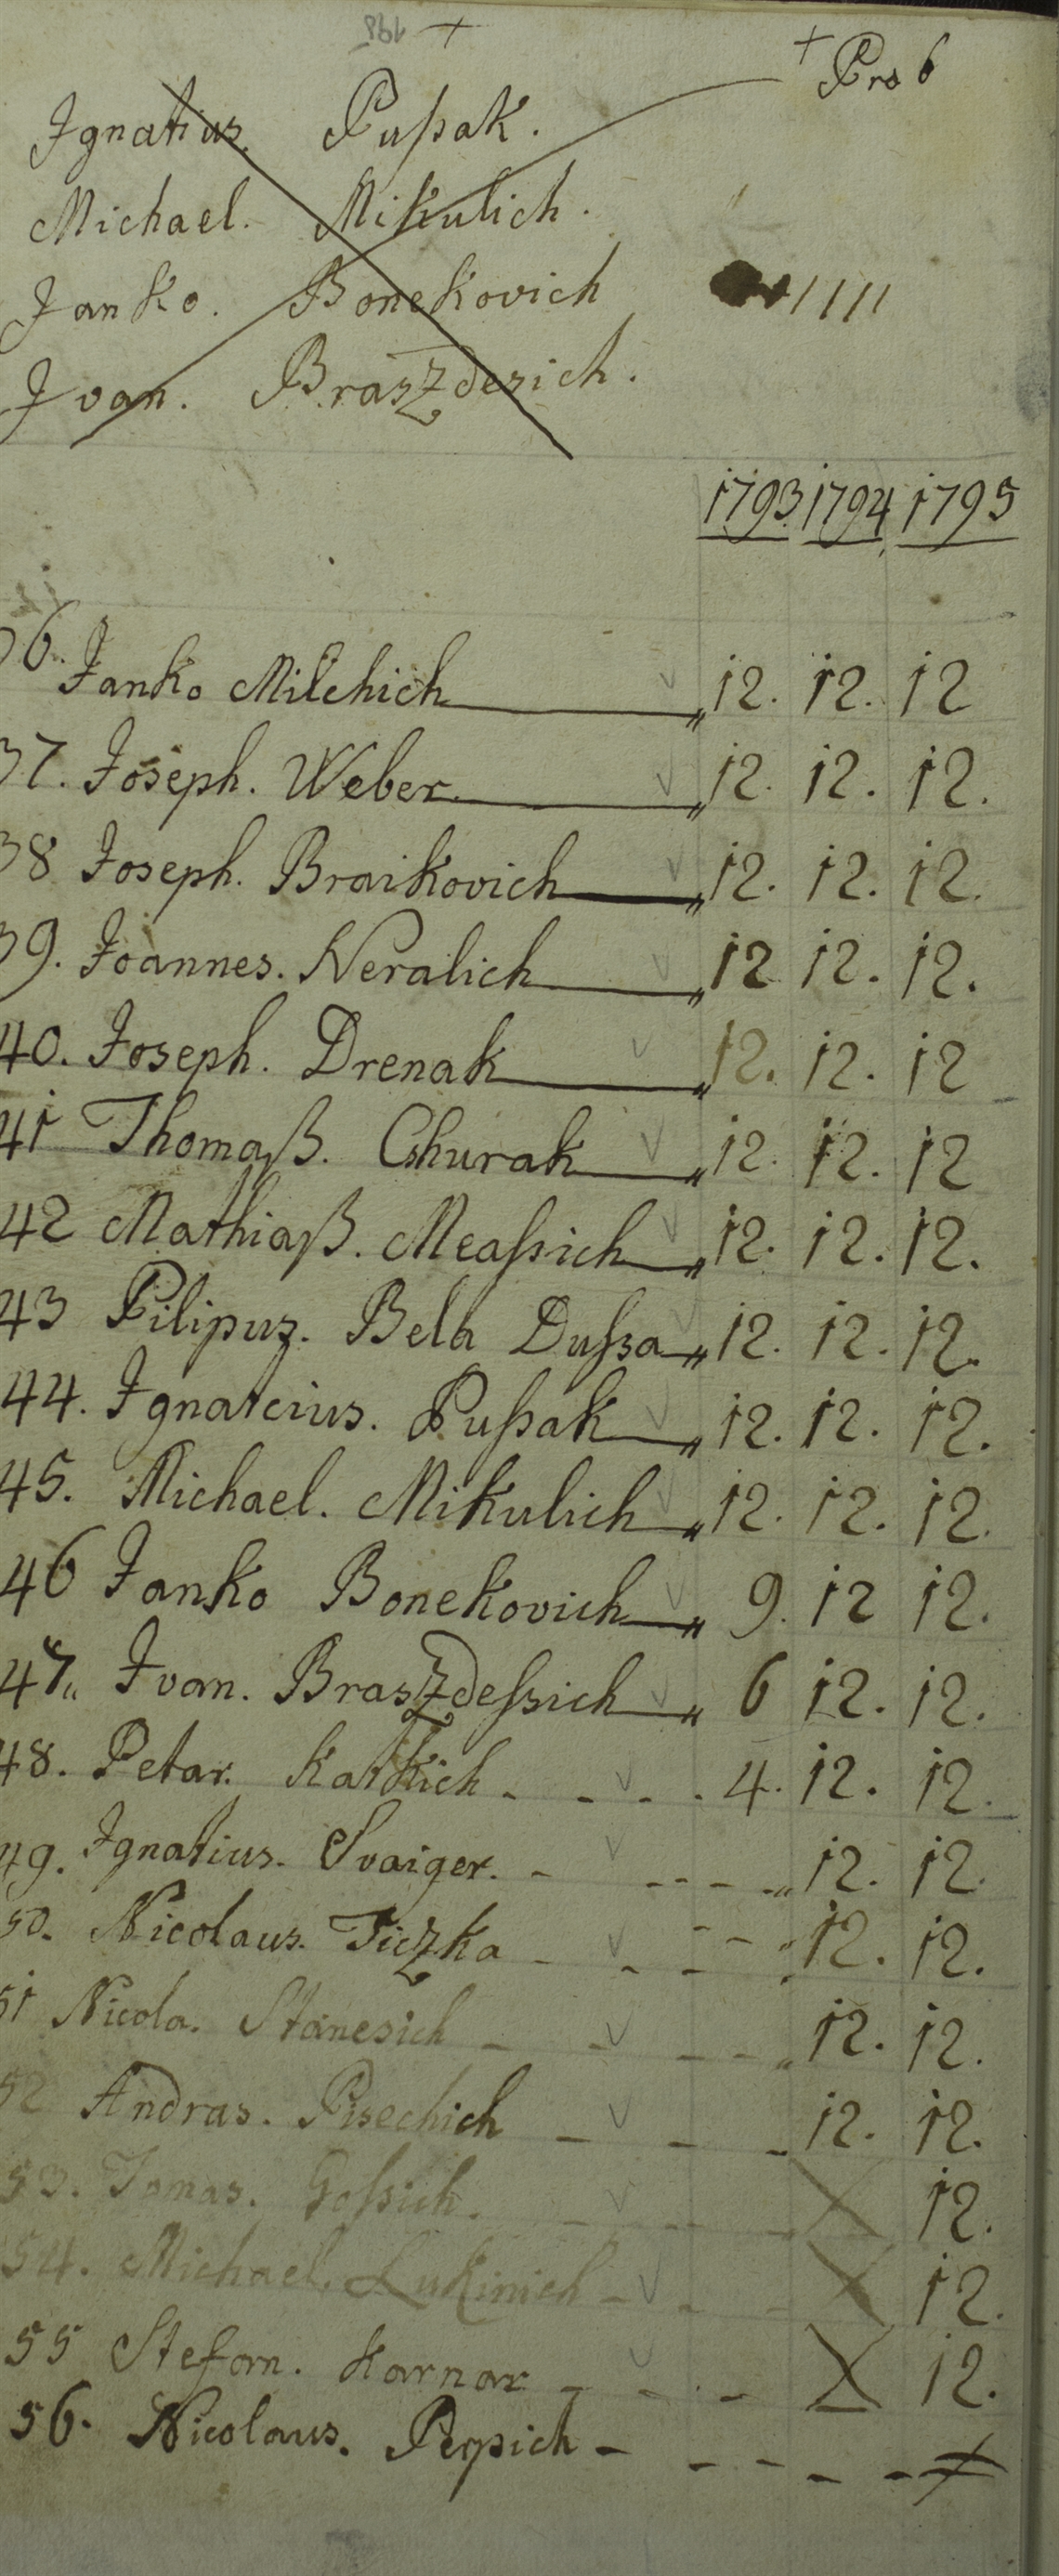 198 +
+ Pro 6
Ignatius. Pußak.
Michael. Mikulich.
Janko. Bonekovich
Ivan. Braszdesich.
1793 1794 1795
36. Janko Milchich 12. 12. 12
37. Joseph. Weber 12. 12. 12.
38 Joseph. Braikovich 12. 12. 12.
39. Joannes. Neralich 12 12. 12.
40. Joseph. Drenak 12. 12. 12
41 Thomaß. Churak 12. 12. 12
42 Mathiaß. Meaßich 12. 12. 12.
43 Pilipus. Bela Dußa 12. 12. 12.
44. Ignatcius. Pußak 12. 12. 12.
45. Michael. Mikulich 12. 12. 12.
46 Janko Bonekovich 9. 12 12.
47 Ivan. Braszdeßich 6 12. 12.
48. Petar. Katkich 4. 12. 12.
49. Ignatius. Svaiger. 12. 12.
50. Nicolaus. Ticzka 12. 12.
51 Nicola. Stanesich 12. 12.
52 Andras. Pisechich 12. 12.
53. Tomas. Goßich. X 12.
54. Michael. Lukinich X 12.
55 Stefan. Karnar X 12.
56. Nicolaus. Perpich